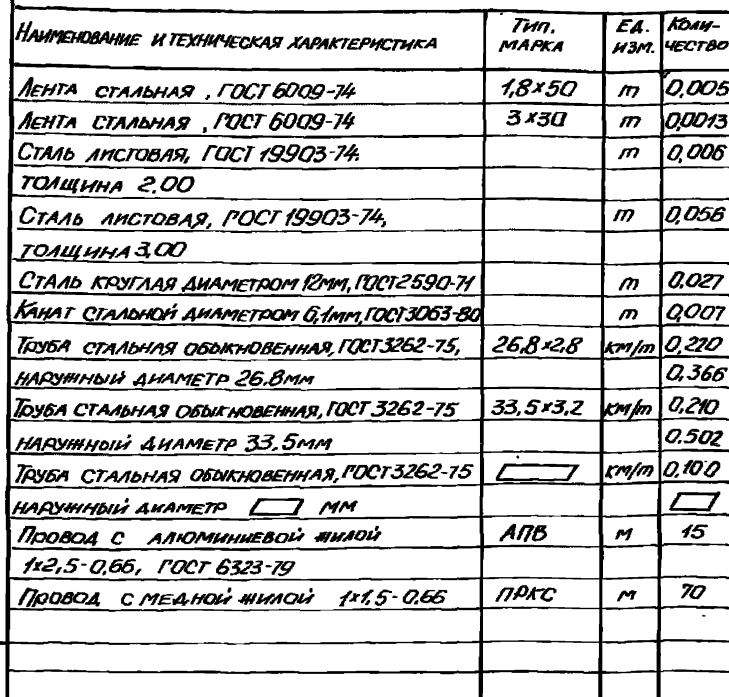 Наименование и техническая характеристика Тип, марка Ед. изм. Коли-чество
Лента стальная, ГОСТ 6009-74 1,8×50 т 0,005
Лента стальная, ГОСТ 6009-74 3×30 т 0,0013
Сталь листовая, ГОСТ 19903-74, т 0,006
толщина 2,00
Сталь листовая, ГОСТ 19903-74, т 0,056
толщина 3,00
Сталь круглая диаметром 12мм, ГОСТ 2590-71 т 0,027
Канат стальной диаметром 6,1мм, ГОСТ 3063-80 т 0,007
Труба стальная обыкновенная, ГОСТ 3262-75, 26,8×2,8 км/т 0,220
наружный диаметр 26.8мм 0,366
Труба стальная обыкновенная, ГОСТ 3262-75 33,5×3,2 км/т 0,210
наружный диаметр 33.5мм 0.502
Труба стальная обыкновенная, ГОСТ 3262-75 км/т 0,100
наружный диаметр мм
Провод с алюминиевой жилой АПВ м 15
1×2,5-0,66, ГОСТ 6323-79
Провод с медной жилой 1×1,5-0,66 ПРКС м 70